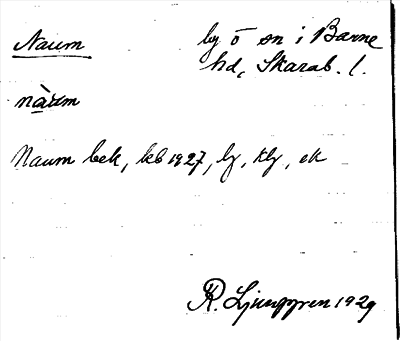 Naum
by o sn i Barne
hd, Skarab. l.
nàum
Naum bek, kb 1927, lz, tlz, ek
R. Ljunggren 1929